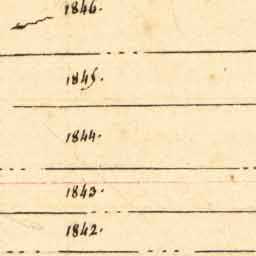 1846.
1845.
1844.
1843.
1842.